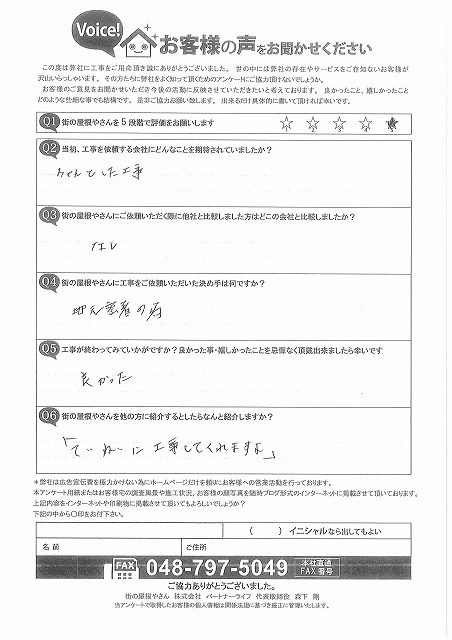 Voice!
お客様の声をお聞かせください
この度は弊社に工事をご用命頂き誠にありがとうございました。 世の中には弊社の存在やサービスをご存知ないお客様が
沢山いらっしゃいます。 その方たちに弊社をよく知って頂くためのアンケートにご協力頂けないでしょうか。
お客様のご意見をお聞かせいただき今後の活動に反映させていただきたいと考えております。 良かったこと、嬉しかったこと
どのような些細な事でも結構です。 是非ご協力お願い致します。 出来るだけ具体的に書いて頂ければ幸いです。
Q1 街の屋根やさんを5段階で評価をお願いします ☆ ☆ ☆ ☆ ★
Q2 当初、工事を依頼する会社にどんなことを期待されていましたか?
ちゃんとした工事
Q3 街の屋根やさんにご依頼いただく際に他社と比較しました方はどこの会社と比較しましたか?
なし
Q4 街の屋根やさんに工事をご依頼いただいた決め手は何ですか?
地元業者の為
Q5 工事が終わってみていかがですか?良かった事・嬉しかったことを忌憚なく頂戴出来ましたら幸いです
良かった
Q6 街の屋根やさんを他の方に紹介するとしたらなんと紹介しますか?
「ていねいに工事してくれますよ」
*弊社は広告宣伝費を極力かけない為にホームページだけを頼りにお客様への営業活動を行っております。
本アンケート用紙またはお客様宅の調査風景や施工状況、お客様の顔写真を随時ブログ形式のインターネットに掲載させて頂いております。
上記内容をインターネットや印刷物に掲載させて頂いてもよろしいでしょうか?
下記の中から〇印をお付下さい。
( ) イニシャルなら出してもよい
名 前 ご住所
FAX 048-797-5049 本社直通 FAX番号
ご協力ありがとうございました。
街の屋根やさん 株式会社 パートナーライフ 代表取締役 森下 剛
当アンケートで取得したお客様の個人情報は関係法規に基づき厳正に管理いたします。